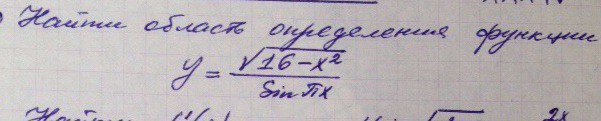 Найти область определения функции
y = √(16 - x²) / Sin πx
Найти
2x